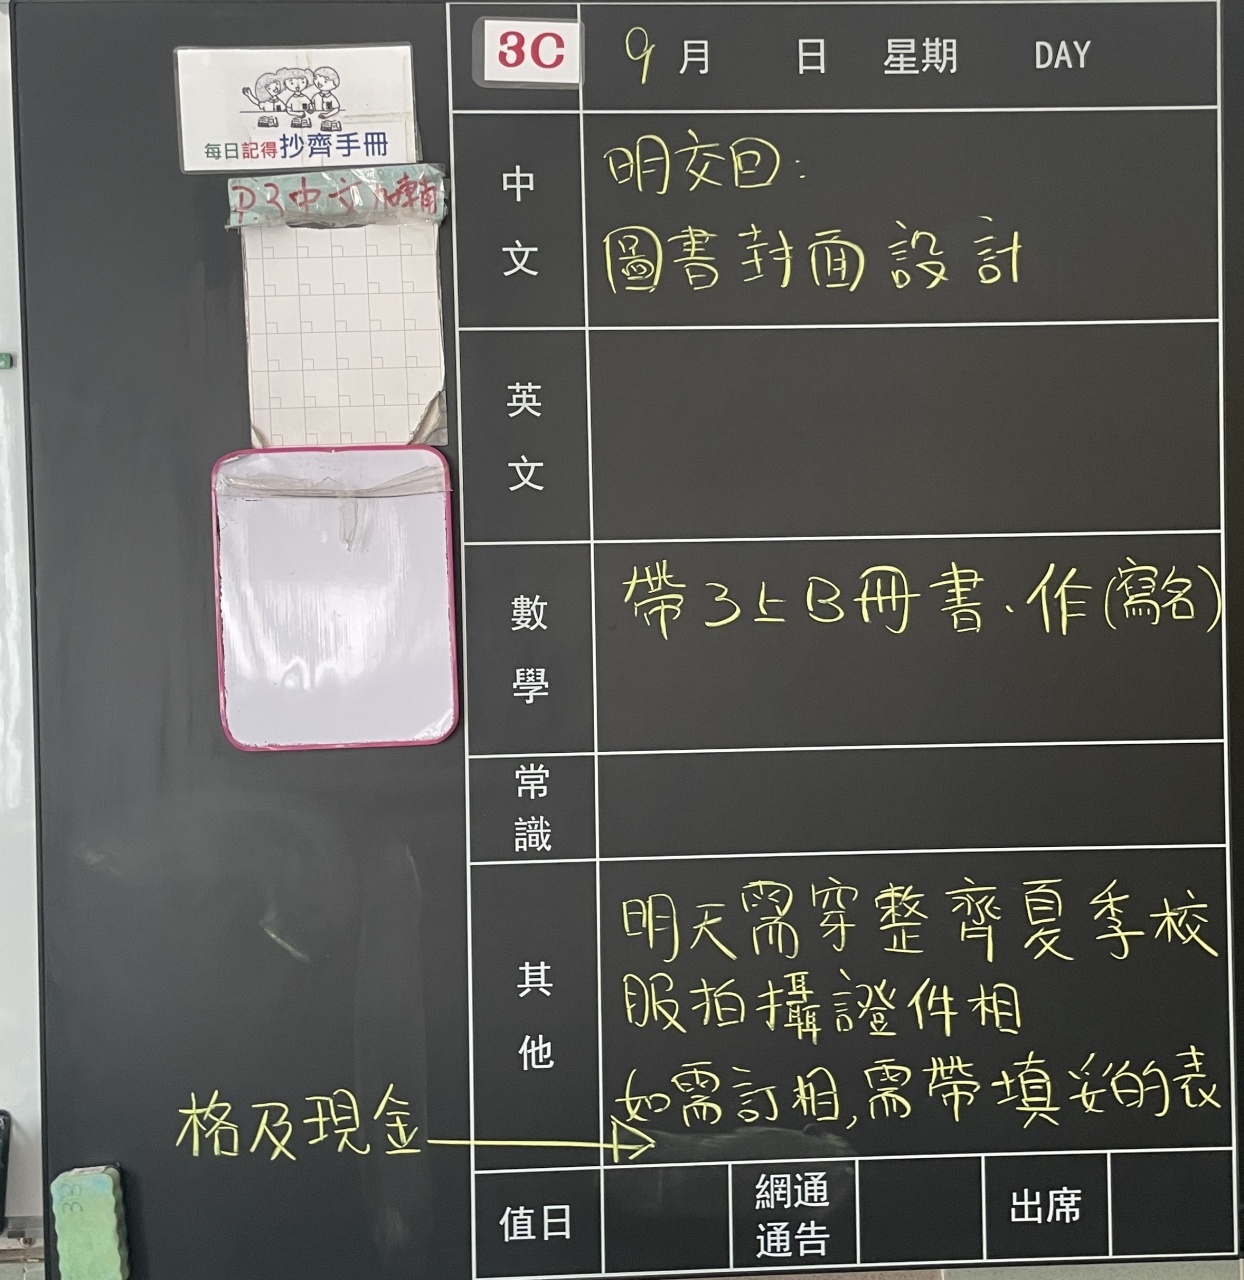 3C 9月 日 星期 DAY
每日記得抄齊手冊
P.3中文
中文
明交回：
圖書封面設計
英文
數學
帶3上B冊書、作(寫名)
常識
其他
明天需穿整齊夏季校
服拍攝證件相
如需訂相,需帶填妥的表
格及現金
值日
網通
通告
出席
3B